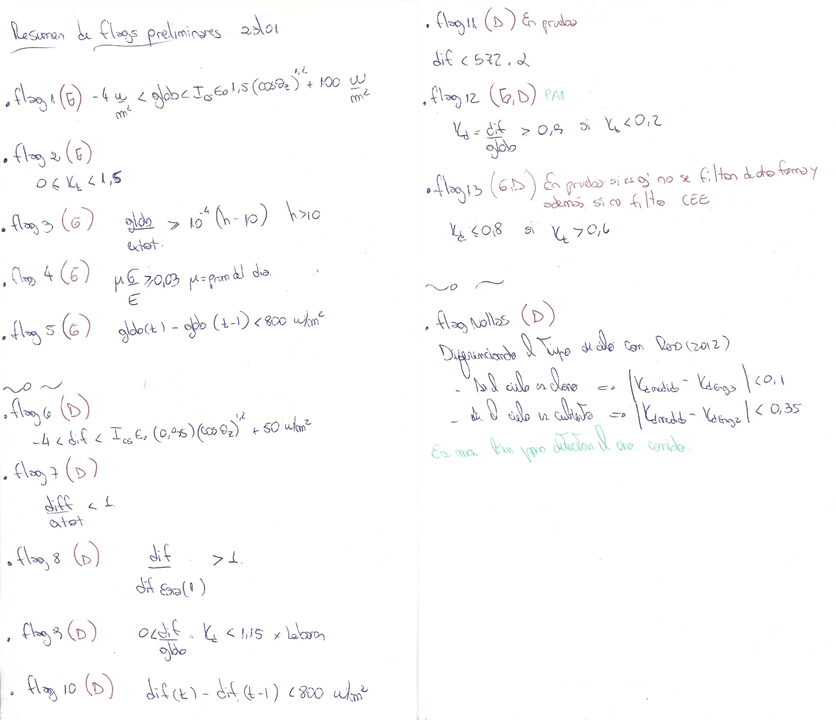 Resumen de flags preliminares 23/01
. flag 1 (G) -4 w/m² < glob < I_cs ε₀ 1,5 (cos θ_z)^1,2 + 100 w/m²
. flag 2 (G)
0 < K_t < 1,5
. flag 3 (G) glob/extot. ≥ 10⁻⁴ (h - 10) h > 10
. flag 4 (G) μ G/E ≥ 0,03 μ = prom del dia.
. flag 5 (G) glob(t) - glob (t-1) < 800 w/m²
. flag 6 (D)
-4 < dif < I_cs ε₀ (cos θ_z)^1,2 + 50 w/m²
. flag 7 (D)
diff/atot < 1
. flag 8 (D) dif/dif > 1.
. flag 9 (D) 0 < dif/glob = K_d < 1,15
. flag 10 (D) dif(t) - dif.(t-1) < 800 w/m²
. flag 11 (D) En prueba
dif < 572 . α
. flag 12 (G,D)
K_d = dif/glob > 0,9 si K_t < 0,2
. flag 13 (G,D) En pruebas si es q' no se filtran de otra forma y
además si no filtro CEE
K_d ≤ 0,8 si K_t > 0,6
. flag Nollas (D)
Diferenciando el Tipo de cielo con (2012)
- Si el cielo es claro => |K_d medido - K_d| < 0,1
- si el cielo es cubierto => |K_d medido - K_d| < 0,35
Es muy bien para detectar el